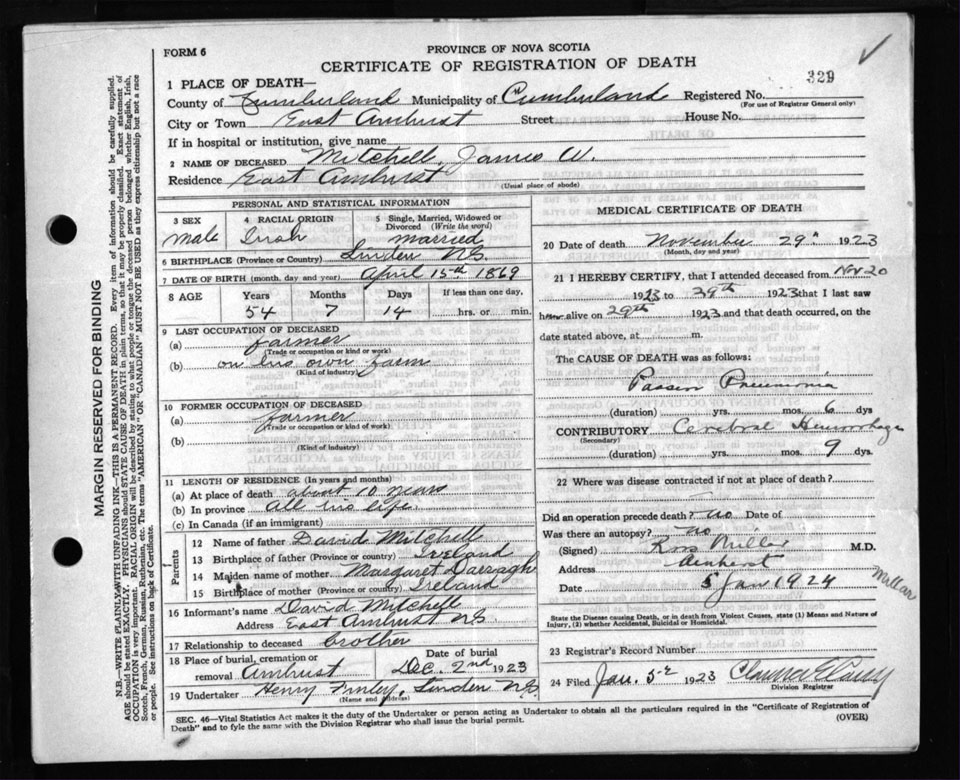 FORM 6
PROVINCE OF NOVA SCOTIA
CERTIFICATE OF REGISTRATION OF DEATH
329
1 PLACE OF DEATH—
County of Cumberland Municipality of Cumberland Registered No.
(For use of Registrar General only)
City or Town East Amhurst Street House No.
If in hospital or institution, give name
2 NAME OF DECEASED Mitchell, James W.
Residence East Amhurst
(Usual place of abode)
PERSONAL AND STATISTICAL INFORMATION
3 SEX
Male
4 RACIAL ORIGIN
Irish
5 Single, Married, Widowed or Divorced (Write the word)
married
6 BIRTHPLACE (Province or Country) Linden N.S.
7 DATE OF BIRTH (month, day and year) April 15th 1869
8 AGE Years Months Days If less than one day,
54 7 14 hrs. or min.
9 LAST OCCUPATION OF DECEASED
(a) farmer
(Trade or occupation or kind or work)
(b) on his own farm
(Kind of industry)
10 FORMER OCCUPATION OF DECEASED
(a) farmer
(Trade or occupation or kind of work)
(b)
(Kind of industry)
11 LENGTH OF RESIDENCE (In years and months)
(a) At place of death about 10 years
(b) In province All his life
(c) In Canada (if an immigrant)
Parents
12 Name of father David Mitchell
13 Birthplace of father (Province or country) Ireland
14 Maiden name of mother Margaret Darragh
15 Birthplace of mother (Province or country) Ireland
16 Informant's name David Mitchell
Address East Amhurst N.S.
17 Relationship to deceased brother
18 Place of burial, cremation or removal Amhurst
Date of burial
Dec. 2nd 1923
19 Undertaker Henry Finley, Linden N.S.
(Name and Address)
MEDICAL CERTIFICATE OF DEATH
20 Date of death November 29th 1923
(Month, day and year)
21 I HEREBY CERTIFY, that I attended deceased from Nov 20
1923 to 29th 1923 that I last saw
him alive on 29th 1923 and that death occurred, on the
date stated above, at m.
The CAUSE OF DEATH was as follows:
Pneumonia
(duration) yrs. mos. 6 dys
CONTRIBUTORY Cerebral Hemorrhage
(Secondary)
(duration) yrs. mos. 9 dys.
22 Where was disease contracted if not at place of death?
Did an operation precede death? no Date of
Was there an autopsy? no
(Signed) Ross Millar M.D.
Address Amherst
Date 5 Jan 1924
Millar
State the Disease Causing Death, or in death from Violent Causes, state (1) Means and Nature of
Injury, (2) whether Accidental, Suicidal or Homicidal.
23 Registrar's Record Number
24 Filed Jan. 5 1923
Division Registrar
SEC. 46—Vital Statistics Act makes it the duty of the Undertaker or person acting as Undertaker to obtain all the particulars required in the "Certificate of Registration of
Death" and to fyle the same with the Division Registrar who shall issue the burial permit.
(OVER)
MARGIN RESERVED FOR BINDING
N.B.—WRITE PLAINLY WITH UNFADING INK—THIS IS A PERMANENT RECORD. Every item of Information should be carefully supplied.
AGE should be stated EXACTLY. PHYSICIANS should STATE CAUSE OF DEATH in plain terms, so that it may be properly classified. Exact statement of
OCCUPATION is very important. RACIAL ORIGIN will be described by stating to what people or tongue the deceased person belonged, whether English, Irish,
Scotch, French, German, Russian, Ruthenian, etc. The terms "AMERICAN" OR "CANADIAN" MUST NOT BE USED as they express citizenship but not a race
or people. See instructions on back of Certificate.